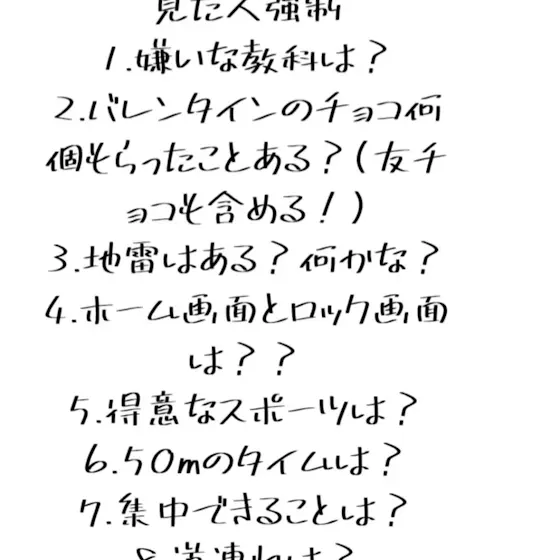 見た人強制
1.嫌いな教科は？
2.バレンタインのチョコ何
個もらったことある？(友チ
ョコも含める！)
3.地雷はある？何かな？
4.ホーム画面とロック画面
は？？
5.得意なスポーツは？
6.50mのタイムは？
7.集中できることは？
8.道連れは？